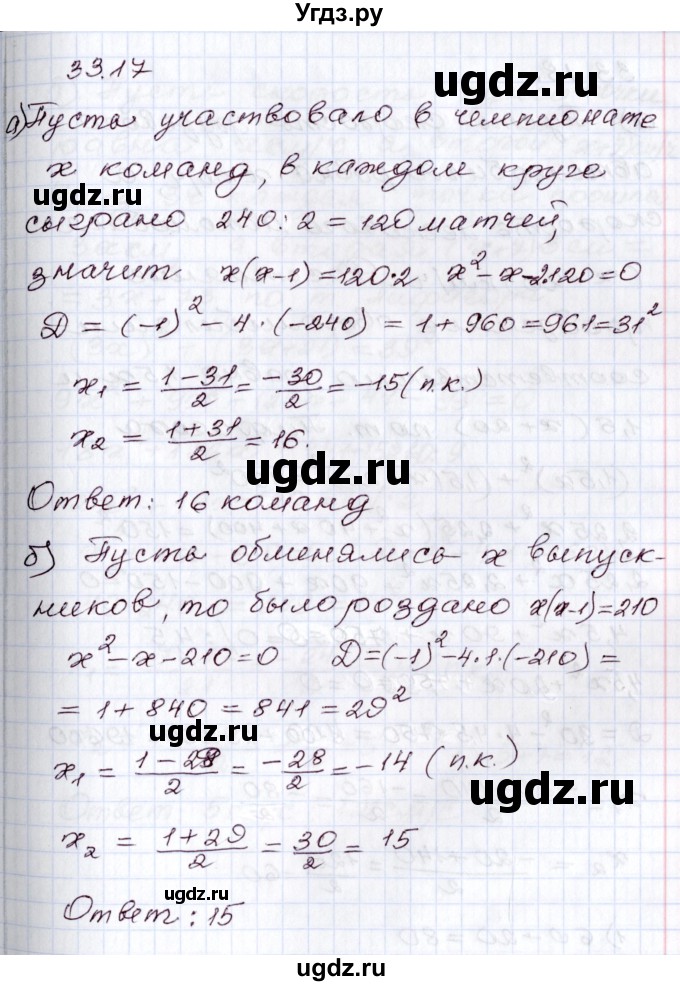 Угдз.ру
33.17
ugdz.ru
а) Пусть участвовало в чемпионате
x команд, в каждом круге
ugdz.ru
сыграно 240:2=120 матчей,
значит x(x-1)=120·2 x²-x-2·120=0
D = (-1)² - 4·(-240) = 1+960=961=31²
x₁ = (1-31)/2 = -30/2 = -15 (п.к.)
x₂ = (1+31)/2 = 16.
ugdz.ru
Ответ: 16 команд
б) Пусть обменялись x выпуск-
ников, то было роздано x(x-1)=210
x²-x-210=0 D=(-1)²-4·1·(-210)=
= 1+840 = 841 = 29²
ugdz.ru
x₁ = (1-29)/2 = -28/2 = -14 (п.к.)
ugdz.ru
x₂ = (1+29)/2 = 30/2 = 15
ugdz.ru
Ответ: 15
ugdz.ru